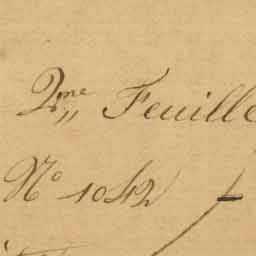 2me Feuille
No 1042